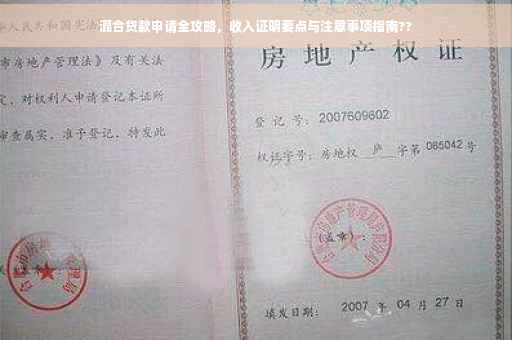 混合贷款申请全攻略，收入证明要点与注意事项指南??
人民共和国宪法
市房地产管理法》及有关法
定，对权利人申请登记本证所
审查属实，准予登记，特发此
房地产权证
登记号：2007609602
权证字号：房地权 庐 字第 065042 号
(盖章)：
填发日期：2007 年 04 月 27 日